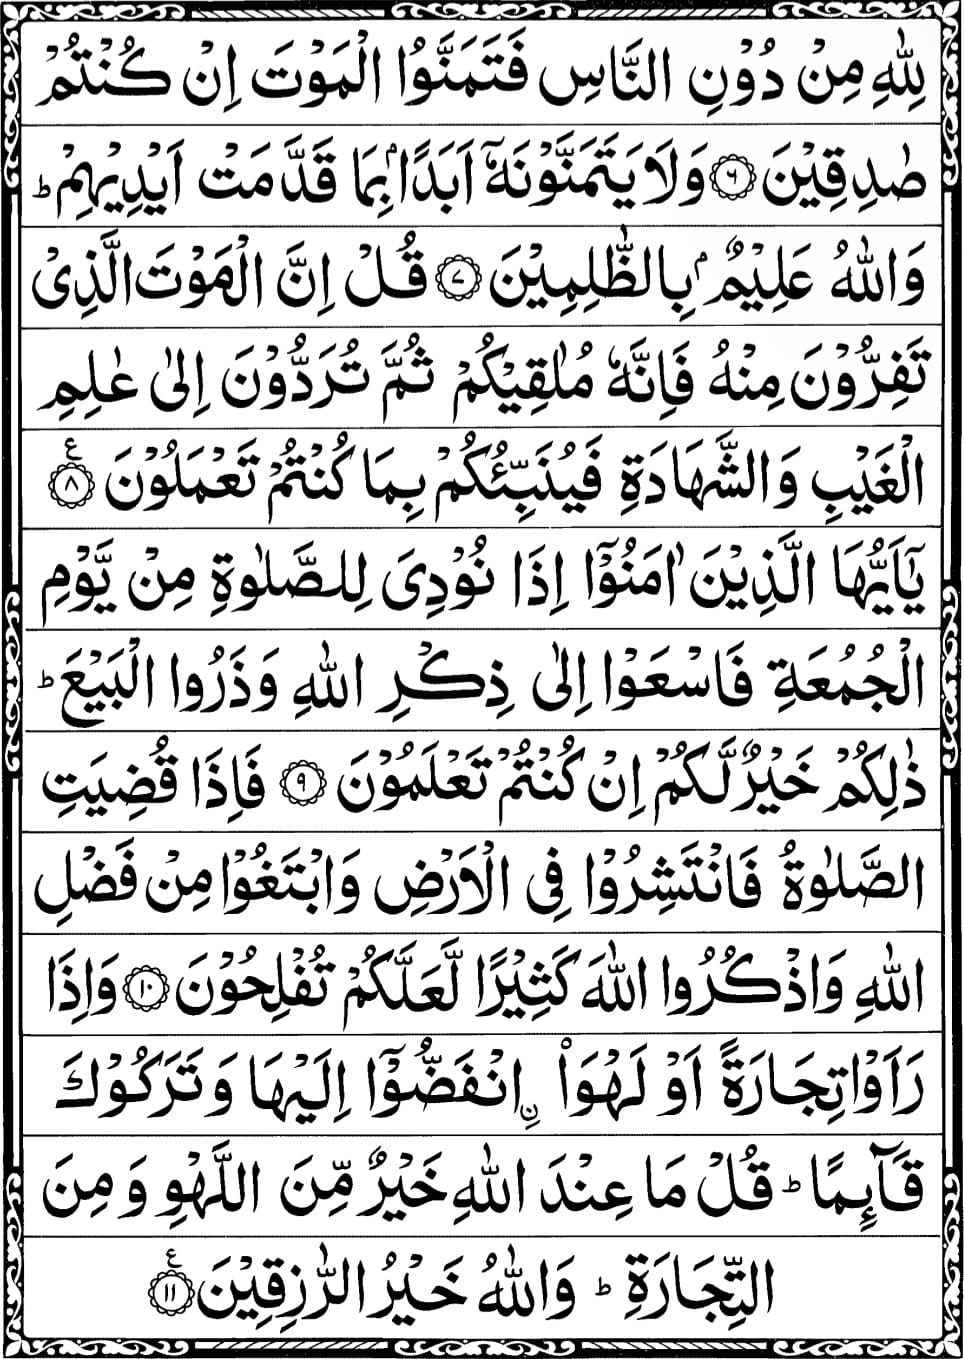 لِلّٰهِ مِنْ دُوْنِ النَّاسِ فَتَمَنَّوُا الْمَوْتَ اِنْ كُنْتُمْ
صٰدِقِيْنَ ۝٦ وَلَا يَتَمَنَّوْنَهٗۤ اَبَدًاۢ بِمَا قَدَّمَتْ اَيْدِيْهِمْ ؕ
وَاللّٰهُ عَلِيْمٌۢ بِالظّٰلِمِيْنَ ۝٧ قُلْ اِنَّ الْمَوْتَ الَّذِيْ
تَفِرُّوْنَ مِنْهُ فَاِنَّهٗ مُلٰقِيْكُمْ ثُمَّ تُرَدُّوْنَ اِلٰى عٰلِمِ
الْغَيْبِ وَالشَّهَادَةِ فَيُنَبِّئُكُمْ بِمَا كُنْتُمْ تَعْمَلُوْنَ ۝٨ ع
يٰۤاَيُّهَا الَّذِيْنَ اٰمَنُوْۤا اِذَا نُوْدِيَ لِلصَّلٰوةِ مِنْ يَّوْمِ
الْجُمُعَةِ فَاسْعَوْا اِلٰى ذِكْرِ اللّٰهِ وَذَرُوا الْبَيْعَ ؕ
ذٰلِكُمْ خَيْرٌ لَّكُمْ اِنْ كُنْتُمْ تَعْلَمُوْنَ ۝٩ فَاِذَا قُضِيَتِ
الصَّلٰوةُ فَانْتَشِرُوْا فِى الْاَرْضِ وَابْتَغُوْا مِنْ فَضْلِ
اللّٰهِ وَاذْكُرُوا اللّٰهَ كَثِيْرًا لَّعَلَّكُمْ تُفْلِحُوْنَ ۝١٠ وَاِذَا
رَاَوْا تِجَارَةً اَوْ لَهْوَا۟ ۨانْفَضُّوْۤا اِلَيْهَا وَ تَرَكُوْكَ
قَآئِمًا ؕ قُلْ مَا عِنْدَ اللّٰهِ خَيْرٌ مِّنَ اللَّهْوِ وَ مِنَ
التِّجَارَةِ ؕ وَاللّٰهُ خَيْرُ الرّٰزِقِيْنَ ۝١١ ع